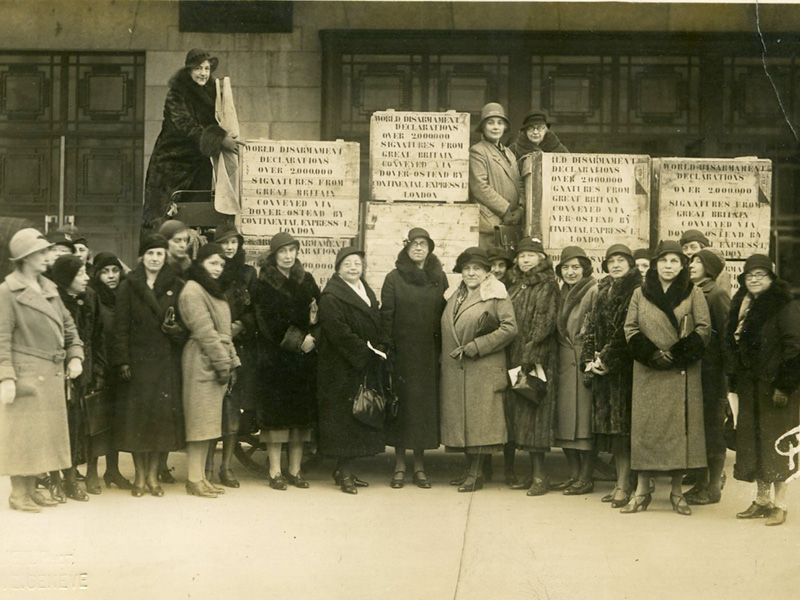 WORLD DISARMAMENT
DECLARATIONS
OVER 2.000.000
SIGNATURES FROM
GREAT BRITAIN
CONVEYED VIA
DOVER-OSTEND BY
CONTINENTAL EXPRESS Lᵀ
LONDON
WORLD DISARMAMENT
DECLARATIONS
OVER 2.000.000
SIGNATURES FROM
GREAT BRITAIN
CONVEYED VIA.
DOVER-OSTEND BY
CONTINENTAL EXPRESS Lᵀ
LONDON
LD DISARMAMENT
DECLARATIONS
OVER 2.000.000
GNATURES FROM
GREAT BRITAIN
CONVEYED VIA
VER-OSTEND BY
TINENTAL EXPRESS Lᵀ
LONDON
WORLD DISARMAMENT
DECLARATIONS
OVER 2.000.000
SIGNATURES FROM
GREAT BRITAIN
CONVEYED VIA
GENEVE